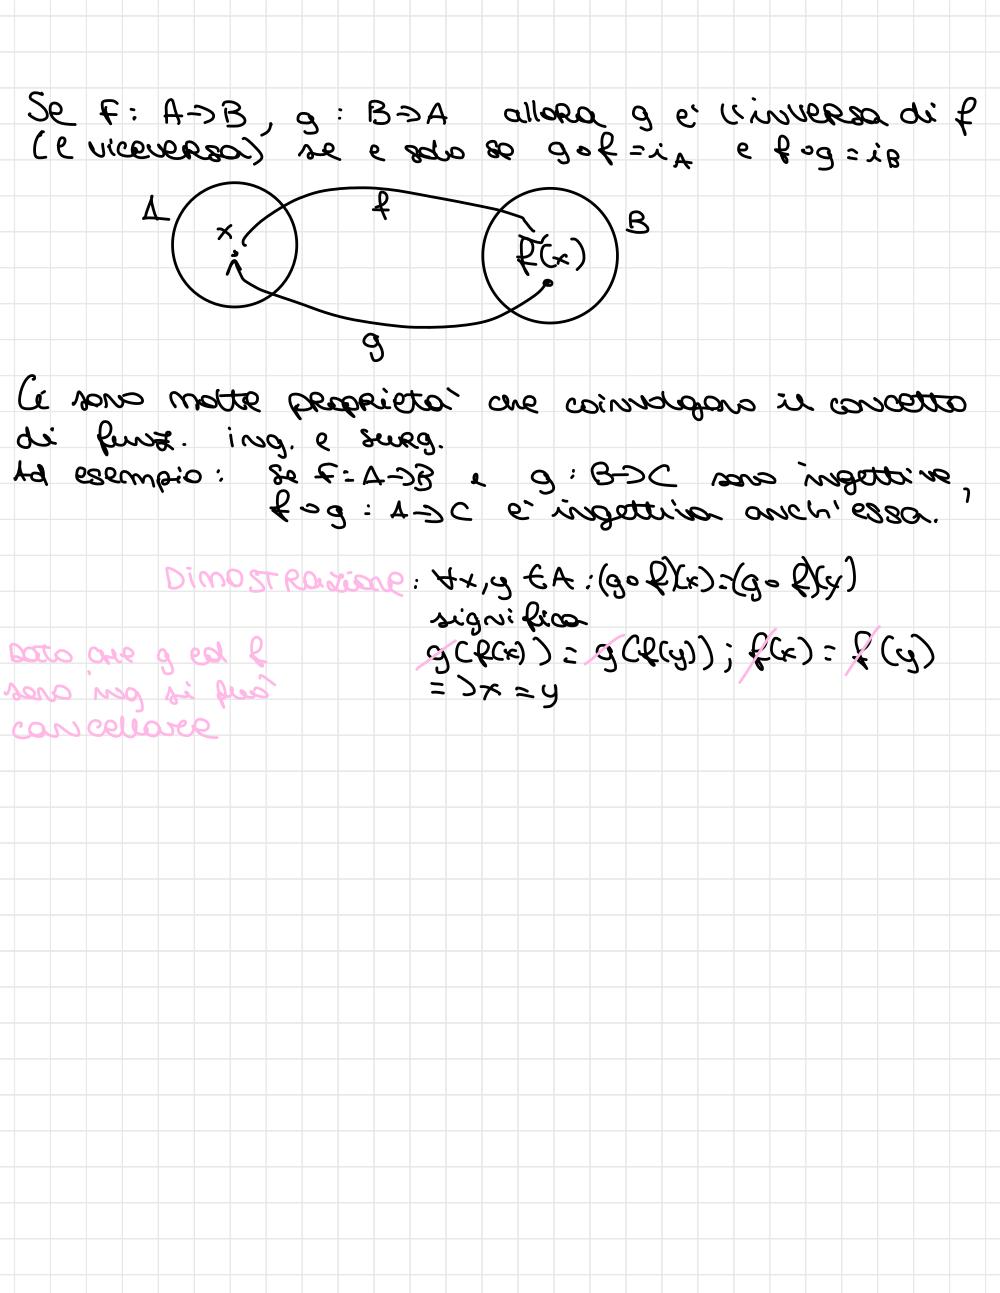 Se f: A→B, g: B→A allora g è l'inversa di f
(e viceversa) se e solo se g∘f = i_A e f∘g = i_B
A
f
B
x
f(x)
g
Ci sono molte proprietà che coinvolgono il concetto
di funz. ing. e surg.
Ad esempio: se f: A→B e g: B→C sono ingettive,
f∘g: A→C è ingettiva anch'essa.
Dimostrazione: ∀x,y ∈ A : (g∘f)(x) = (g∘f)(y)
significa
g(f(x)) = g(f(y)); f(x) = f(y)
=> x = y
Dato che g ed f
sono ing si può
cancellare